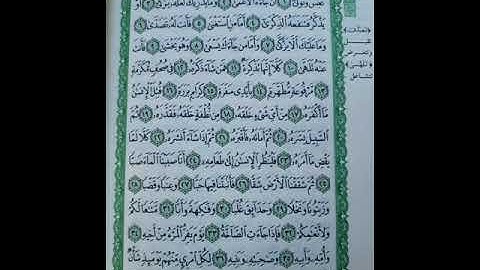 عَبَسَ وَتَوَلَّىٰٓ ١ أَن جَآءَهُ ٱلْأَعْمَىٰ ٢ وَمَا يُدْرِيكَ لَعَلَّهُۥ يَزَّكَّىٰٓ ٣ أَوْ
يَذَّكَّرُ فَتَنفَعَهُ ٱلذِّكْرَىٰٓ ٤ أَمَّا مَنِ ٱسْتَغْنَىٰ ٥ فَأَنتَ لَهُۥ تَصَدَّىٰ ٦
وَمَا عَلَيْكَ أَلَّا يَزَّكَّىٰ ٧ وَأَمَّا مَن جَآءَكَ يَسْعَىٰ ٨ وَهُوَ يَخْشَىٰ ٩ فَأَنتَ
عَنْهُ تَلَهَّىٰ ١٠ كَلَّآ إِنَّهَا تَذْكِرَةٌ ١١ فَمَن شَآءَ ذَكَرَهُۥ ١٢ فِى صُحُفٍ مُّكَرَّمَةٍ
١٣ مَّرْفُوعَةٍ مُّطَهَّرَةٍۭ ١٤ بِأَيْدِى سَفَرَةٍ ١٥ كِرَامٍۭ بَرَرَةٍ ١٦ قُتِلَ ٱلْإِنسَٰنُ
مَآ أَكْفَرَهُۥ ١٧ مِنْ أَىِّ شَىْءٍ خَلَقَهُۥ ١٨ مِن نُّطْفَةٍ خَلَقَهُۥ فَقَدَّرَهُۥ ١٩ ثُمَّ
ٱلسَّبِيلَ يَسَّرَهُۥ ٢٠ ثُمَّ أَمَاتَهُۥ فَأَقْبَرَهُۥ ٢١ ثُمَّ إِذَا شَآءَ أَنشَرَهُۥ ٢٢ كَلَّا لَمَّا
يَقْضِ مَآ أَمَرَهُۥ ٢٣ فَلْيَنظُرِ ٱلْإِنسَٰنُ إِلَىٰ طَعَامِهِۦٓ ٢٤ أَنَّا صَبَبْنَا ٱلْمَآءَ صَبًّا
٢٥ ثُمَّ شَقَقْنَا ٱلْأَرْضَ شَقًّا ٢٦ فَأَنۢبَتْنَا فِيهَا حَبًّا ٢٧ وَعِنَبًا وَقَضْبًا ٢٨
وَزَيْتُونًا وَنَخْلًا ٢٩ وَحَدَآئِقَ غُلْبًا ٣٠ وَفَٰكِهَةً وَأَبًّا ٣١ مَّتَٰعًا لَّكُمْ
وَلِأَنْعَٰمِكُمْ ٣٢ فَإِذَا جَآءَتِ ٱلصَّآخَّةُ ٣٣ يَوْمَ يَفِرُّ ٱلْمَرْءُ مِنْ أَخِيهِ ٣٤
وَأُمِّهِۦ وَأَبِيهِ ٣٥ وَصَٰحِبَتِهِۦ وَبَنِيهِ ٣٦ لِكُلِّ ٱمْرِئٍ مِّنْهُمْ يَوْمَئِذٍ شَأْنٌ
تقبل
تتشاغل